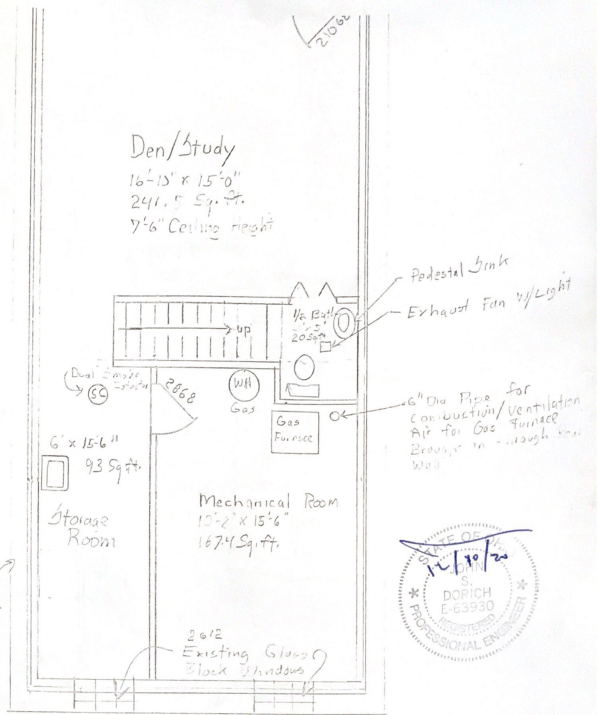 21062
Den/Study
16'-10" x 15'-0"
241.5 Sq. ft.
7'-6" Ceiling Height
Pedestal Sink
Exhaust Fan W/Light
1/2 Bath
20 Sq ft
up
Dual Smoke
SC
2868
WH
Gas
Gas
Furnace
6" Dia Pipe for
Combustion/Ventilation
Air for Gas Furnace
Brought in through
Wall
6' x 15'-6"
93 Sq ft.
Storage
Room
Mechanical Room
x 15'-6"
167.4 Sq. ft.
2612
Existing Glass
Block Windows
STATE OF
12/10/20
JOHN
S.
DORICH
E-63930
REGISTERED
PROFESSIONAL ENGINEER